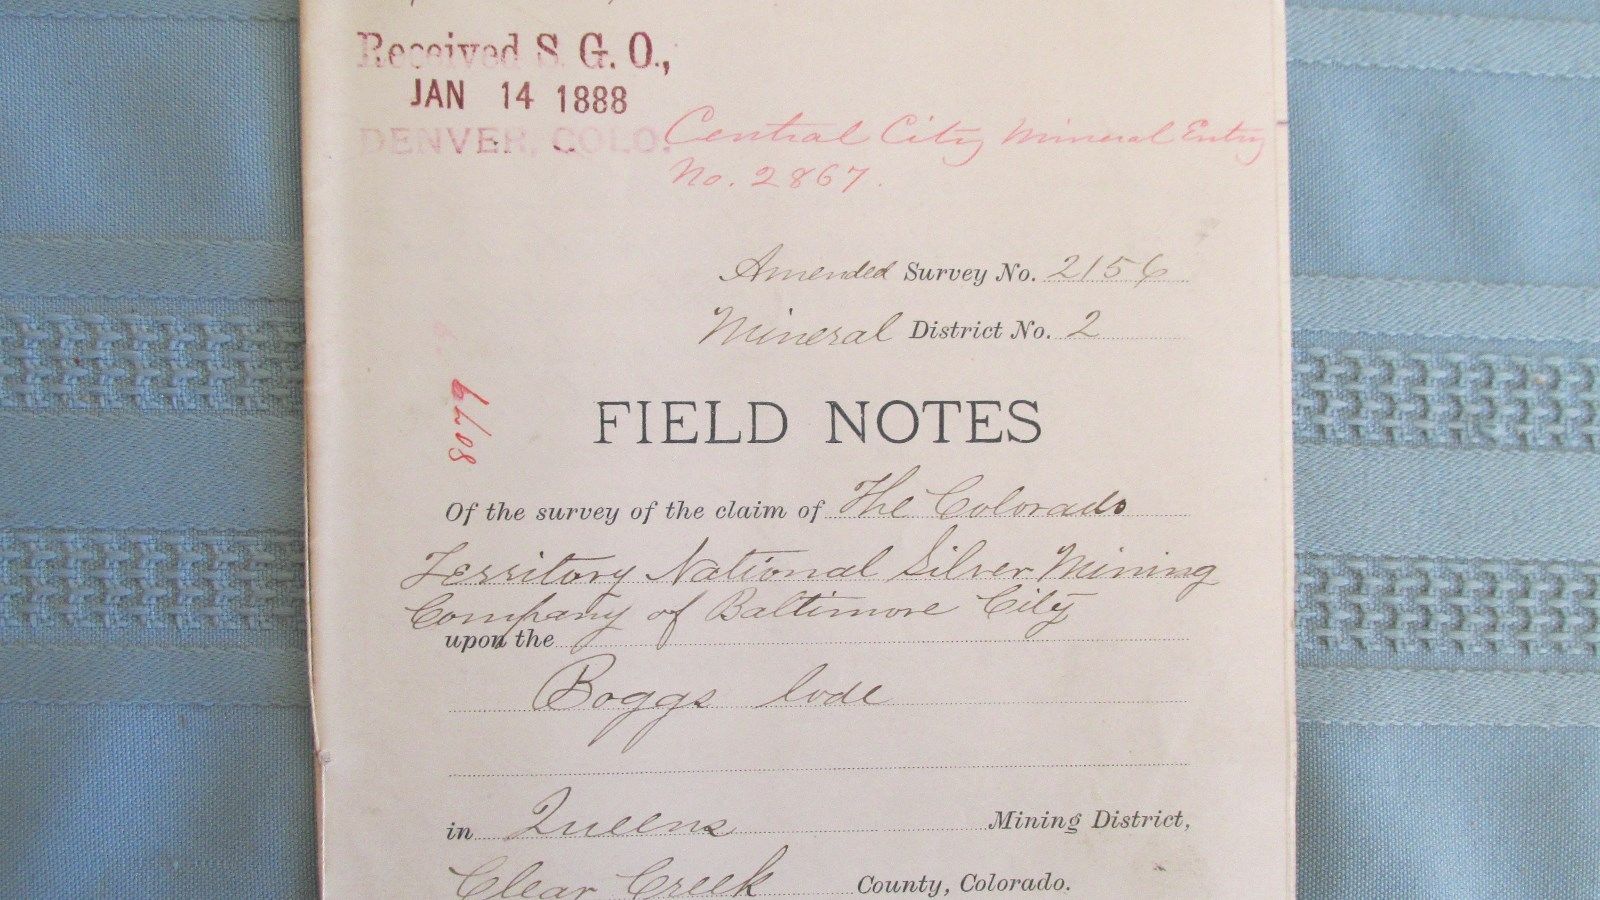 Received S. G. O.,
JAN 14 1888
DENVER, COLO.
Central City Mineral Entry
No. 2867.
Amended Survey No. 2156
Mineral District No. 2
8079
FIELD NOTES
Of the survey of the claim of The Colorado
Territory National Silver Mining
Company of Baltimore City
upon the
Boggs lode
in Queens Mining District,
Clear Creek County, Colorado.